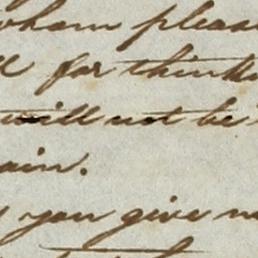 pleas
for think
will not be
ain.
you give